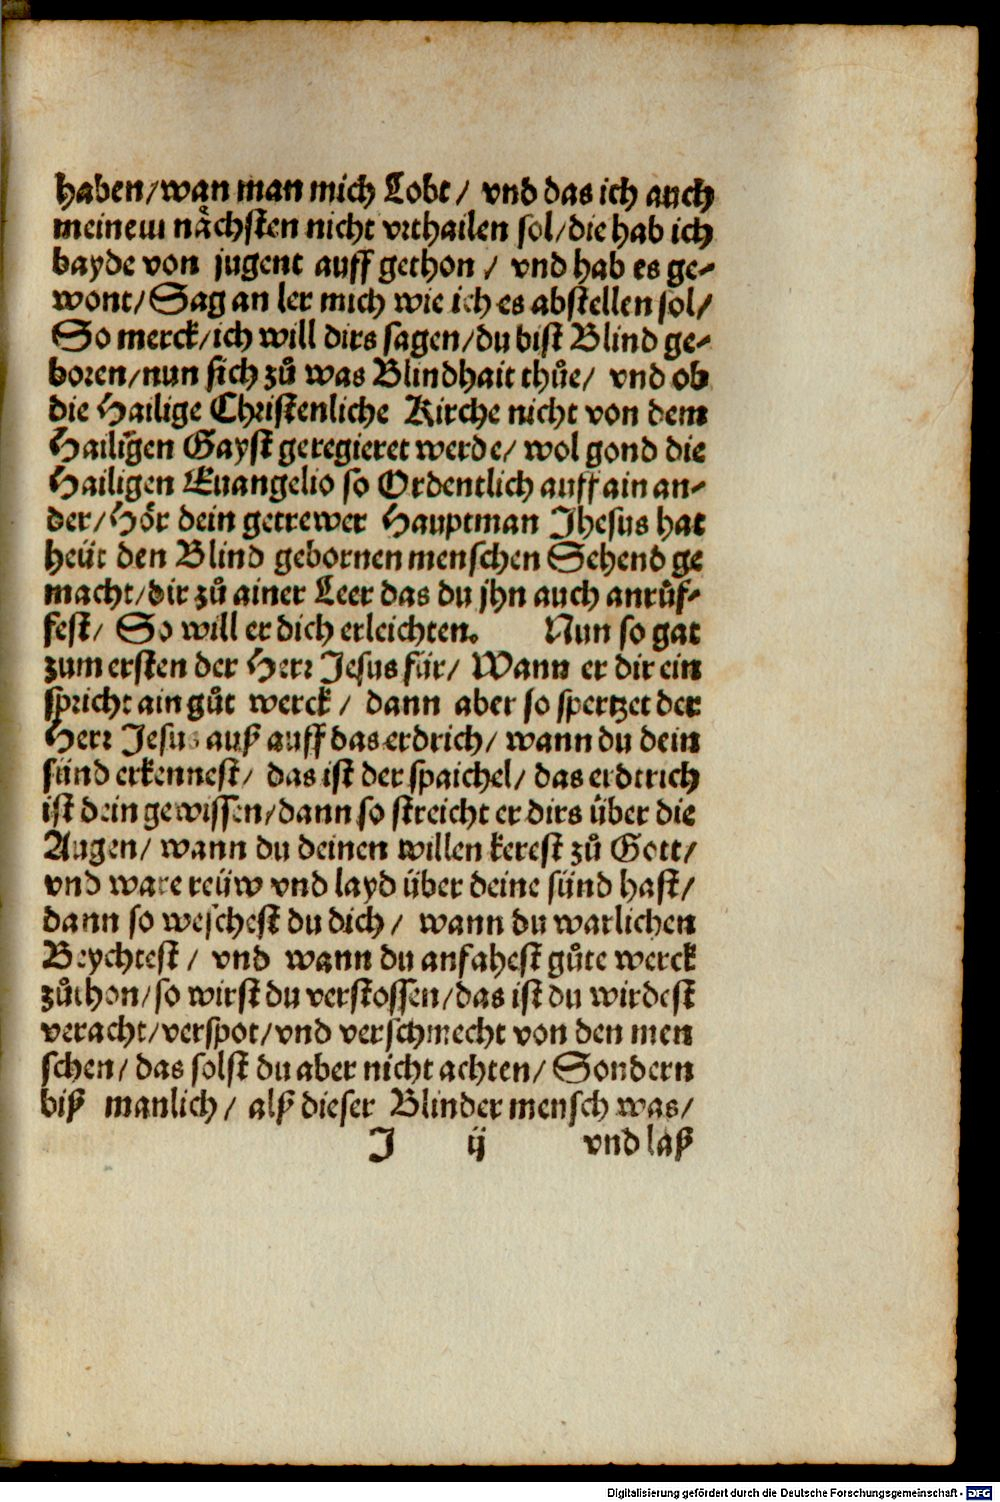 haben/wan man mich Lobt/ vnd das ich auch
meinem nächsten nicht vrthailen sol/die hab ich
bayde von jugent auff gethon/ vnd hab es ge-
wont/Sag an ler mich wie ich es abstellen sol/
So merck/ich will dirs sagen/du bist Blind ge-
boren/nun sich zuͦ was Blindhait thuͤe/ vnd ob
die Hailige Christenliche Kirche nicht von dem
Hailigen Gayst geregieret werde/ wol gond die
Hailigen Euangelio so Ordentlich auff ain an-
der/Hör dein getrewer Hauptman Jhesus hat
heüt den Blind gebornen menschen Sehend ge
macht/dir zuͦ ainer Leer das du jhn auch anruͤf-
fest/ So will er dich erleichten. Nun so gat
zum ersten der Herr Jesus für/ Wann er dir ein
spricht ain guͦt werck/ dann aber so spertzet der
Herr Jesus auß auff das erdrich/ wann du dein
sünd erkennest/ das ist der spaichel/ das erdtrich
ist dein gewissen/dann so streicht er dirs über die
Augen/ wann du deinen willen kerest zuͦ Gott/
vnd ware reüw vnd layd über deine sünd hast/
dann so weschest du dich/ wann du warlichen
Beychtest/ vnd wann du anfahest guͦte werck
zuͦthon/so wirst du verstossen/das ist du wirdest
veracht/verspot/vnd verschmecht von den men
schen/ das solst du aber nicht achten/ Sondern
biß manlich/ alß dieser Blinder mensch was/
J ij vnd laß
Digitalisierung gefördert durch die Deutsche Forschungsgemeinschaft - DFG